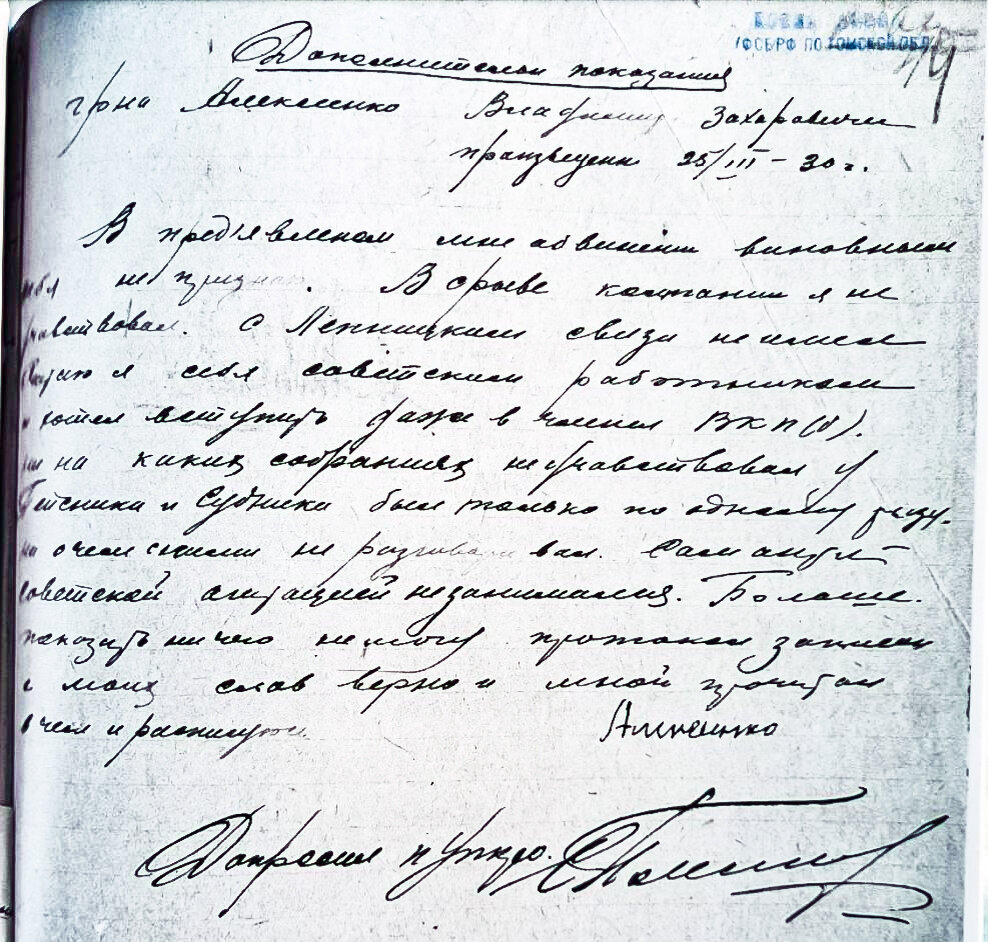 УФСБ РФ ПО ТОМСКОЙ ОБЛ
Дополнительн показания
гр-на Алексеенко Владимир Захарович
произведенн 25/III – 30 г.
В пред'явленом мне обвинении виновным
себя не признаю. В срыве кампании я не
учавствовал. С Лепницким связи не имел
Считаю я себя советским работником
и хотел вступить даже в члены ВКП(б).
ни на каких собраниях не учавствовал у
и Судника был только по одному разу.
ни о чем с ними не разговаривал. Сам анти
советской агитацией незанимался. Больше.
показать ничего не могу протокол записан
с моих слов верно и мной прочитан
в чем и распишусь
Алексеенко
Допросил п/упкр.